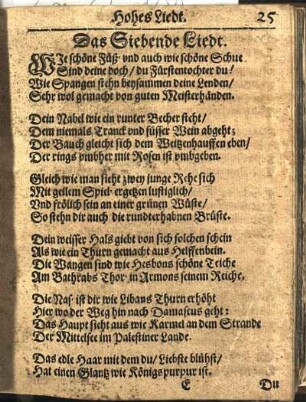 Hohes Liedt. 25
Das Siebende Liedt.
WJe schöne Füß/ vnd auch wie schöne Schue
Sind deine doch/ du Fürstentochter du!
Wie Spangen stehn beysammen deine Lenden/
Sehr wol gemacht von guten Meisterhänden.
Dein Nabel wie ein runter Becher steht/
Dem niemals Tranck vnd süsser Wein abgeht;
Der Bauch gleicht sich dem Weitzenhauffen eben/
Der rings vmbher mit Rosen ist vmbgeben.
Gleich wie man sieht zwey junge Rehe sich
Mit geilem Spiel ergetzen lustiglich/
Vnd frölich sein an einer grünen Wüste/
So stehn dir auch die rundterhabnen Brüste.
Dein weisser Hals giebt von sich solchen schein
Als wie ein Thurn gemacht aus Helffenbein.
Die Wangen sind wie Hesbons schöne Teiche
Am Bathrabs Thor in Armons seinem Reiche.
Die Nas' ist dir wie Libans Thurn erhöht
Hier wo der Weg hin nach Damascus geht:
Das Haupt sieht aus wie Karmel an dem Strande
Der Mittelsee im Palestiner Lande.
Das edle Haar mit dem du/ Liebste blühst/
Hat einen Glantz wie Königs purpur ist.
E Du